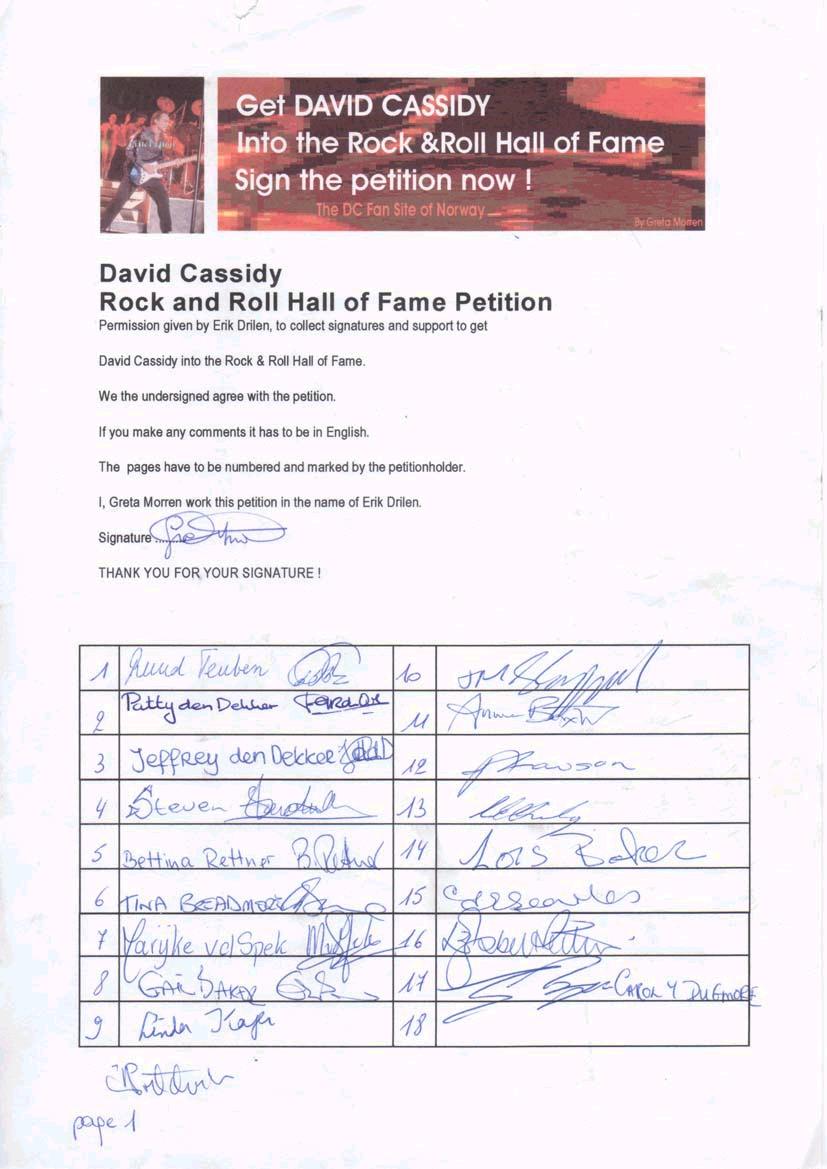 Get DAVID CASSIDY
Into the Rock &Roll Hall of Fame
Sign the petition now !
The DC Fan Site of Norway
By Greta Morren
David Cassidy
Rock and Roll Hall of Fame Petition
Permission given by Erik Drilen, to collect signatures and support to get
David Cassidy into the Rock & Roll Hall of Fame.
We the undersigned agree with the petition.
If you make any comments it has to be in English.
The pages have to be numbered and marked by the petitionholder.
I, Greta Morren work this petition in the name of Erik Drilen.
Signature
THANK YOU FOR YOUR SIGNATURE !
1 Ruud Teuben 10
2 Patty den Dekker 11
3 Jeffrey den Dekker 12
4 Steven 13
5 Bettina Rettner B. Rettner 14 Lois Baker
6 TINA BEADMORE 15
7 Marijke vd Spek 16
8 GAIL BAKER 17 CAROL Y DUGMORE
9 Linda 18
page 1